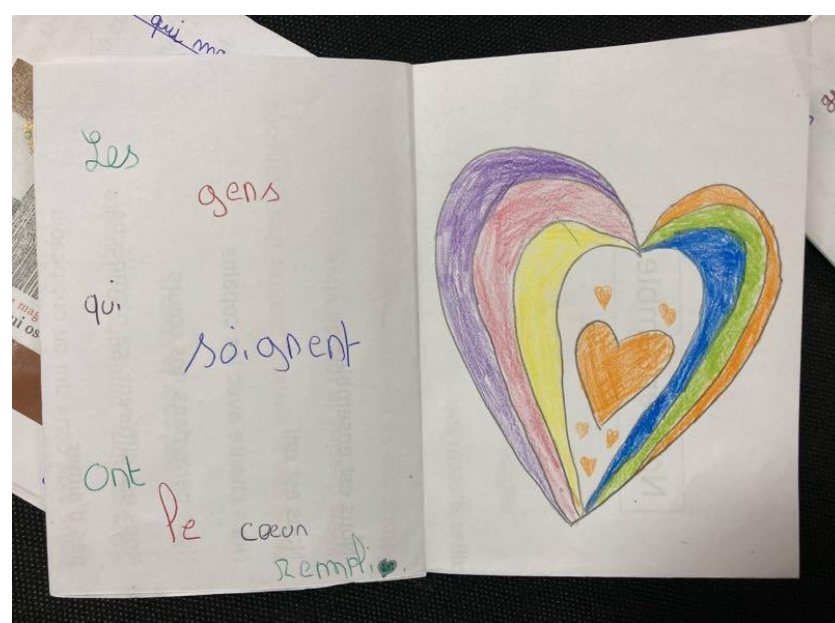 qui
Les
gens
qui
soignent
Ont
le cœur
rempli.